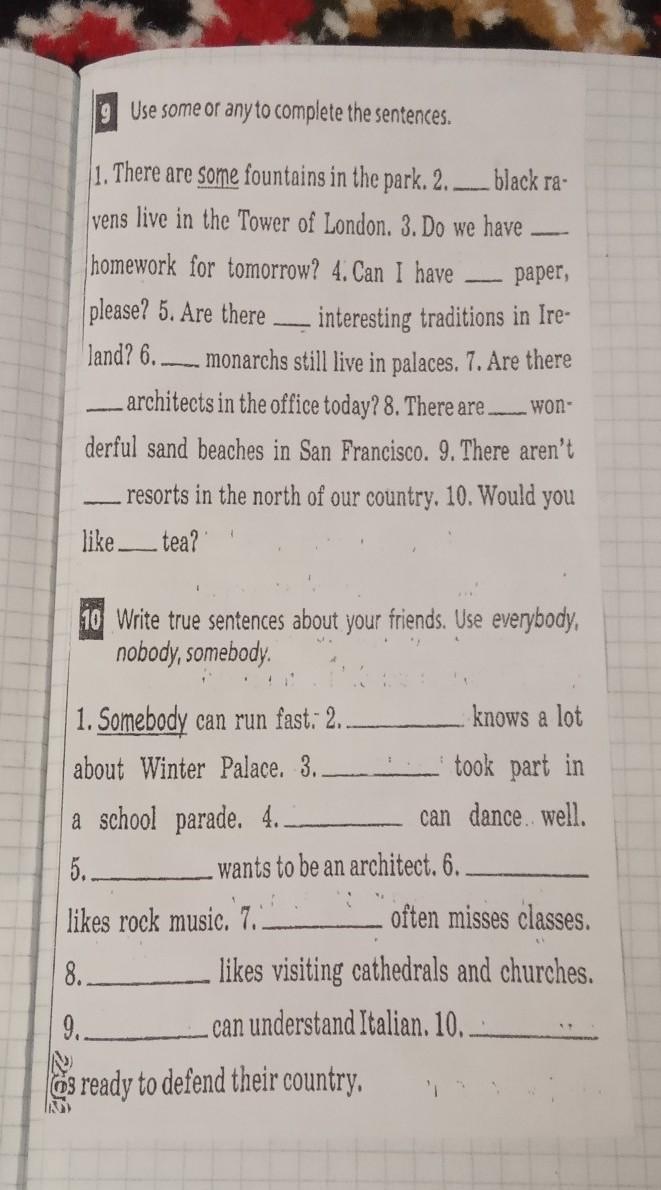 9 Use some or any to complete the sentences.
1. There are some fountains in the park. 2. ___ black ra-
vens live in the Tower of London. 3. Do we have ___
homework for tomorrow? 4. Can I have ___ paper,
please? 5. Are there ___ interesting traditions in Ire-
land? 6. ___ monarchs still live in palaces. 7. Are there
___ architects in the office today? 8. There are ___ won-
derful sand beaches in San Francisco. 9. There aren't
___ resorts in the north of our country. 10. Would you
like ___ tea?
10 Write true sentences about your friends. Use everybody,
nobody, somebody.
1. Somebody can run fast. 2. ___ knows a lot
about Winter Palace. 3. ___ took part in
a school parade. 4. ___ can dance well.
5. ___ wants to be an architect. 6. ___
likes rock music. 7. ___ often misses classes.
8. ___ likes visiting cathedrals and churches.
9. ___ can understand Italian. 10. ___
ready to defend their country.